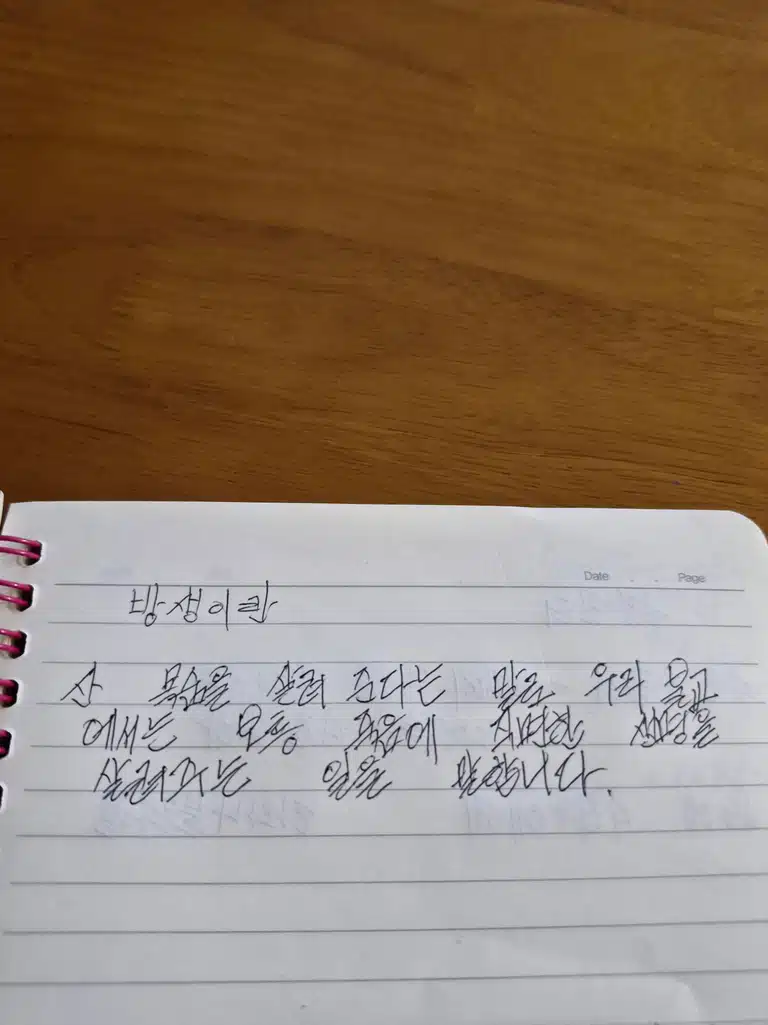 Date . . Page
방생이란
산 목숨을 살려 준다는 말로 우리 불교
에서는 모든 죽음에 직면한 생명을
살려주는 일을 말합니다.